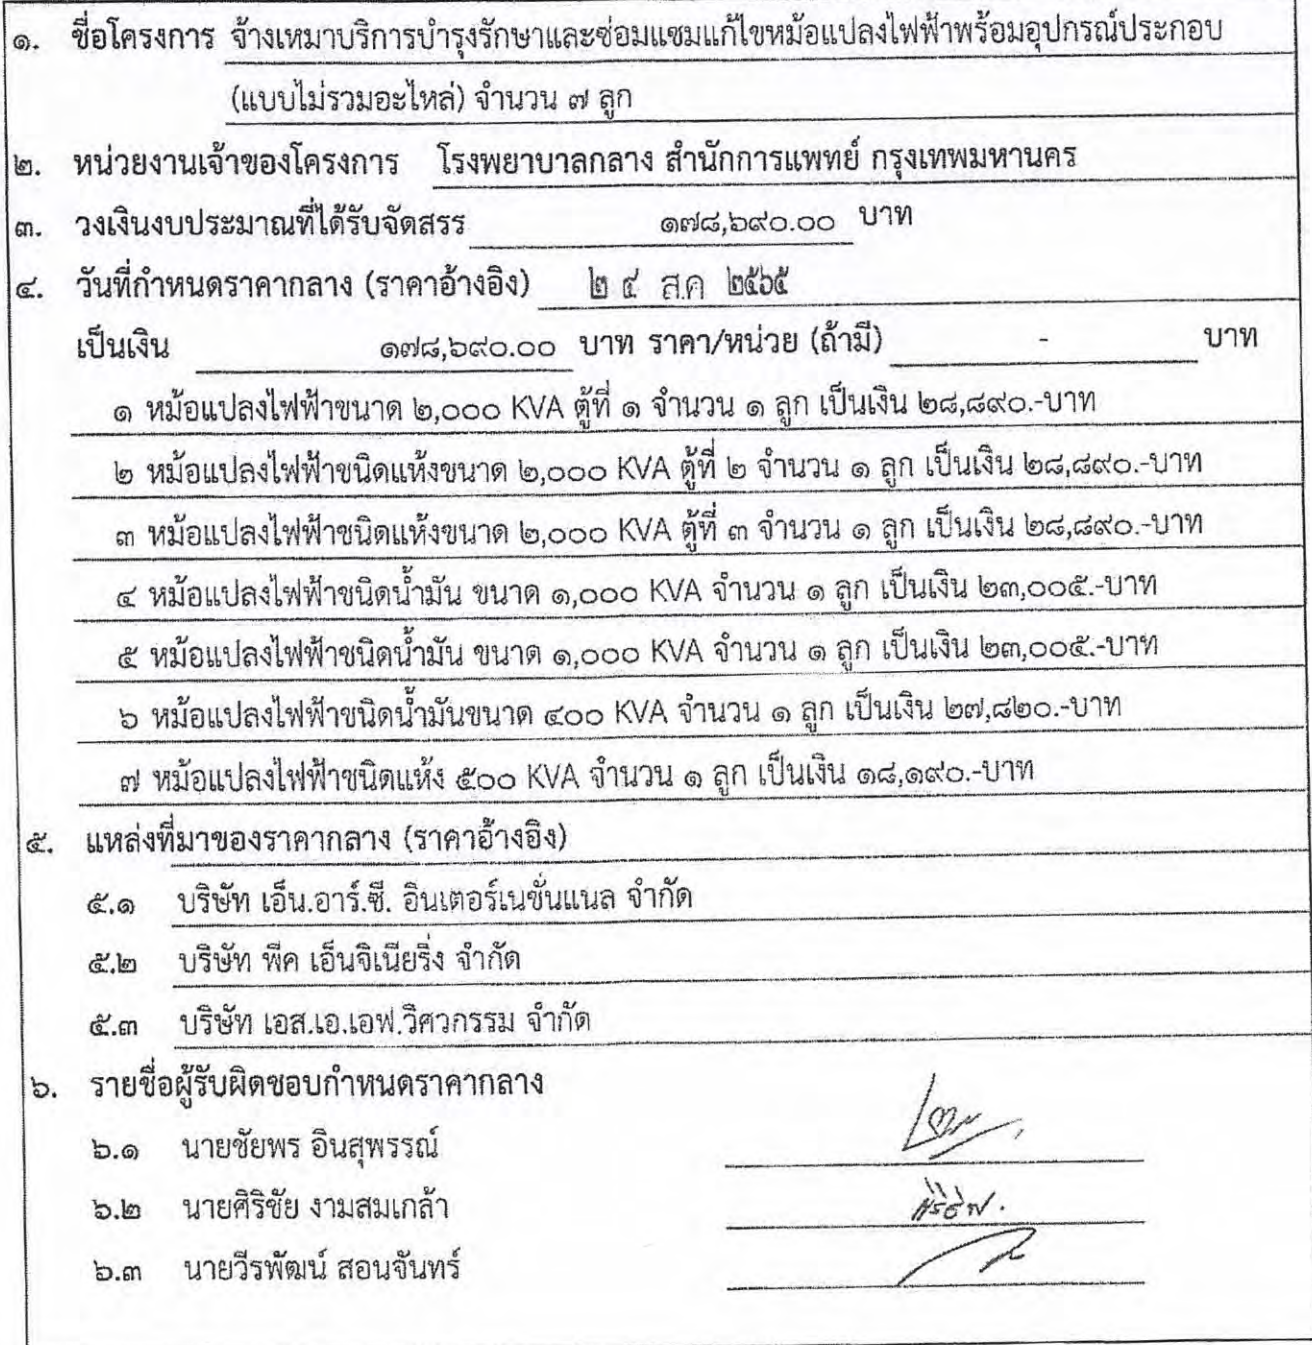 ๑. ชื่อโครงการ จ้างเหมาบริการบำรุงรักษาและซ่อมแซมแก้ไขหม้อแปลงไฟฟ้าพร้อมอุปกรณ์ประกอบ
(แบบไม่รวมอะไหล่) จำนวน ๗ ลูก
๒. หน่วยงานเจ้าของโครงการ โรงพยาบาลกลาง สำนักการแพทย์ กรุงเทพมหานคร
๓. วงเงินงบประมาณที่ได้รับจัดสรร ๑๗๘,๖๙๐.๐๐ บาท
๔. วันที่กำหนดราคากลาง (ราคาอ้างอิง) ๒๔ ส.ค ๒๕๖๕
เป็นเงิน ๑๗๘,๖๙๐.๐๐ บาท ราคา/หน่วย (ถ้ามี) - บาท
๑ หม้อแปลงไฟฟ้าขนาด ๒,๐๐๐ KVA ตู้ที่ ๑ จำนวน ๑ ลูก เป็นเงิน ๒๘,๘๙๐.-บาท
๒ หม้อแปลงไฟฟ้าชนิดแห้งขนาด ๒,๐๐๐ KVA ตู้ที่ ๒ จำนวน ๑ ลูก เป็นเงิน ๒๘,๘๙๐.-บาท
๓ หม้อแปลงไฟฟ้าชนิดแห้งขนาด ๒,๐๐๐ KVA ตู้ที่ ๓ จำนวน ๑ ลูก เป็นเงิน ๒๘,๘๙๐.-บาท
๔ หม้อแปลงไฟฟ้าชนิดน้ำมัน ขนาด ๑,๐๐๐ KVA จำนวน ๑ ลูก เป็นเงิน ๒๓,๐๐๕.-บาท
๕ หม้อแปลงไฟฟ้าชนิดน้ำมัน ขนาด ๑,๐๐๐ KVA จำนวน ๑ ลูก เป็นเงิน ๒๓,๐๐๕.-บาท
๖ หม้อแปลงไฟฟ้าชนิดน้ำมันขนาด ๔๐๐ KVA จำนวน ๑ ลูก เป็นเงิน ๒๗,๘๒๐.-บาท
๗ หม้อแปลงไฟฟ้าชนิดแห้ง ๕๐๐ KVA จำนวน ๑ ลูก เป็นเงิน ๑๘,๑๙๐.-บาท
๕. แหล่งที่มาของราคากลาง (ราคาอ้างอิง)
๕.๑ บริษัท เอ็น.อาร์.ซี. อินเตอร์เนชั่นแนล จำกัด
๕.๒ บริษัท พีค เอ็นจิเนียริ่ง จำกัด
๕.๓ บริษัท เอส.เอ.เอฟ.วิศวกรรม จำกัด
๖. รายชื่อผู้รับผิดชอบกำหนดราคากลาง
๖.๑ นายชัยพร อินสุพรรณ์
๖.๒ นายศิริชัย งามสมเกล้า
๖.๓ นายวีรพัฒน์ สอนจันทร์